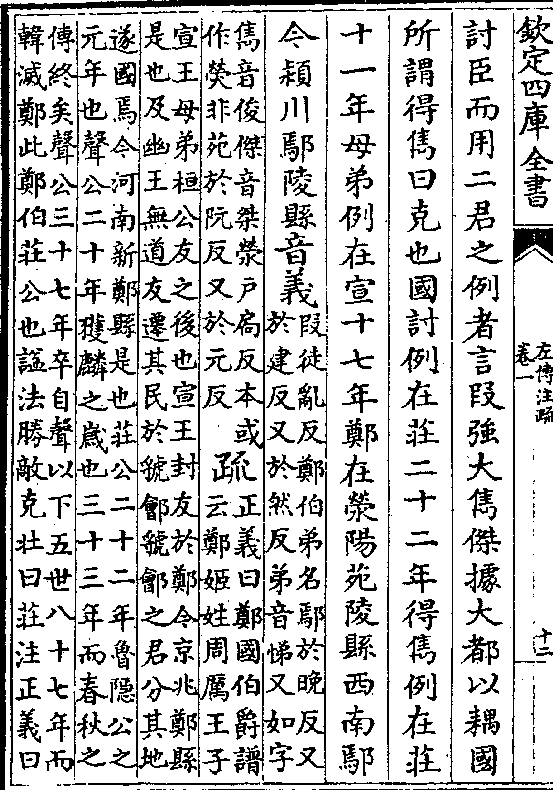 欽定四庫全書
左傳注疏
卷一
十二
討臣而用二君之例者言段強大儁傑據大都以耦國
所謂得儁曰克也國討例在莊二十二年得儁例在莊
十一年母弟例在宣十七年鄭在滎陽苑陵縣西南鄢
今潁川鄢陵縣音義
段徒亂反鄭伯弟名鄢於晚反又
於建反又於然反弟音悌又如字
儁音俊傑音桀滎戶扃反本或
作熒非苑於阮反又於元反
疏
正義曰鄭國伯爵譜
云鄭姬姓周厲王子
宣王母弟桓公友之後也宣王封友於鄭今京兆鄭縣
是也及幽王無道友遷其民於虢鄶虢鄶之君分其地
遂國焉今河南新鄭縣是也莊公二十二年魯隱公之
元年也聲公二十年獲麟之歲也三十三年而春秋之
傳終矣聲公三十七年卒自聲以下五世八十七年而
韓滅鄭此鄭伯莊公也諡法勝敵克壯曰莊注正義曰